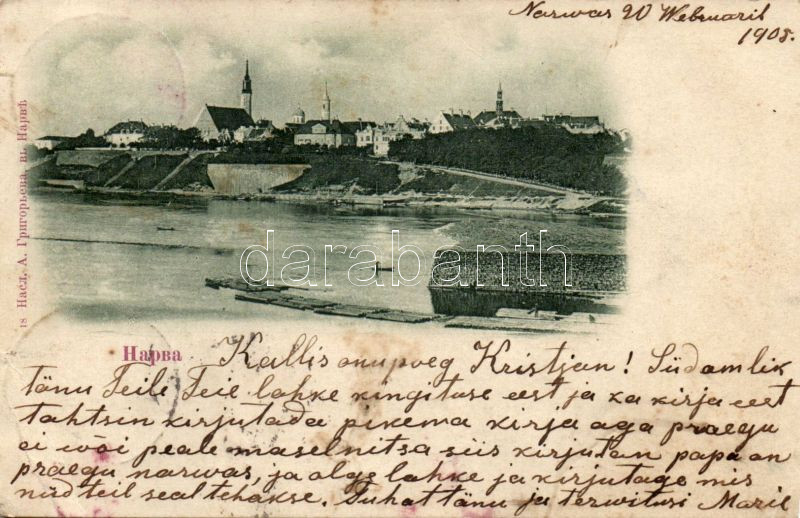 Narwas 20 Webruaril
1905.
18 Насл. А. Григорьева, въ Нарвѣ
darabanth
Нарва
Kallis onupoeg Kristjan! Südamlik
tänu Teile Teie lahke kingituse eest ja ka kirja eest
tahtsin kirjutada pikema kirja aga praegu
ei wõi peale maselnitsa siis kirjutan papa on
praegu narwas, ja olge lahke ja kirjutage mis
nüid teil seal tehakse. Tuhat tänu ja terwitusi Maril